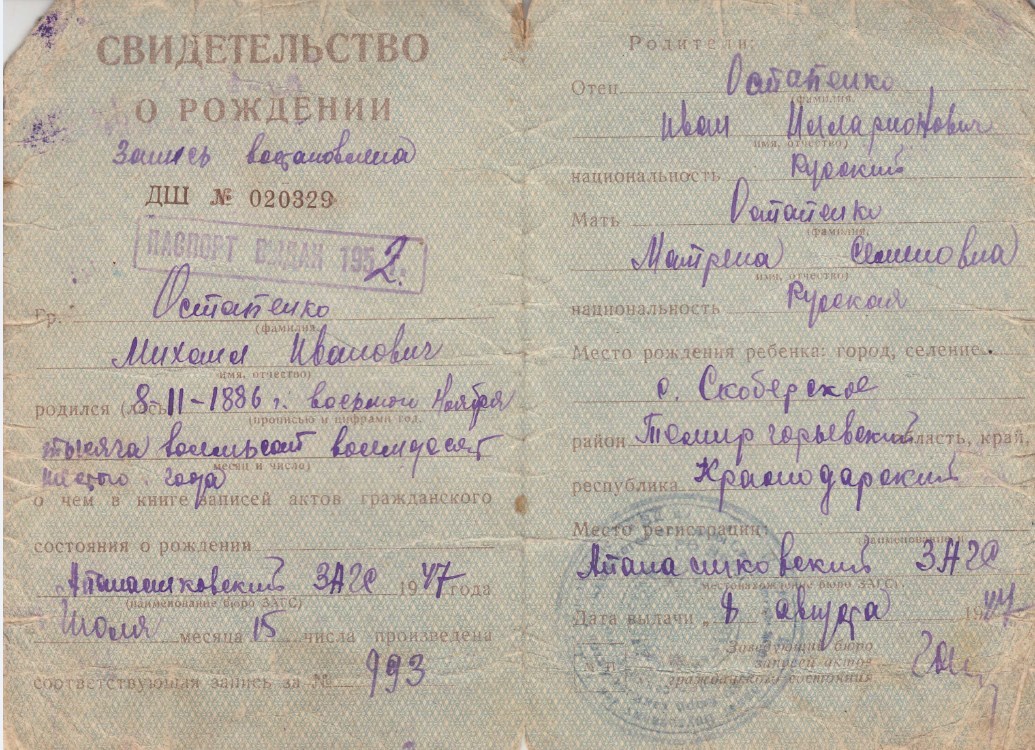 СВИДЕТЕЛЬСТВО
О РОЖДЕНИИ
Запись востановлена
ДШ № 020329
ПАСПОРТ ВЫДАН 1952 г.
Гр. Остапенко
(фамилия
Михаил Иванович
имя, отчество)
родился (лась) 8-11-1886 г. восьмого Ноября
(прописью и цифрами год,
тысяча восемьсот восемдесят
месяц и число)
шестого года
о чем в книге записей актов гражданского
состояния о рождении
Апанасиковский ЗАГС 1947 года
(наименование бюро ЗАГС)
Июля месяца 15 числа произведена
соответствующая запись за № 993
Родители:
Отец Остапенко
(фамилия,
Иван Илларионович
имя, отчество)
национальность Русский
Мать Остапенко
(фамилия,
Матрена Семеновна
имя, отчество)
национальность Русская
Место рождения ребенка: город, селение
с. Скоберское
район Темиргоевский область, край,
республика Краснодарский
Место регистрации:
(наименование и
Апанасиковский ЗАГС
местонахождение бюро ЗАГС)
Дата выдачи „8 августа 1947
Заведующий бюро
м. п. записей актов
гражданского состояния